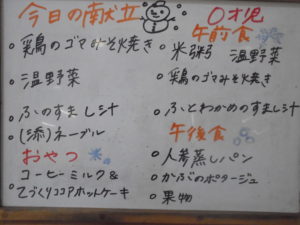 今日の献立
○鶏のゴマみそ焼き
○温野菜
○ふのすまし汁
○(添)ネーブル
おやつ
○コーヒーミルク&
てづくりココアホットケーキ
0才児
午前食
○米粥 温野菜
○鶏のゴマみそ焼き
○ふとわかめのすまし汁
午後食
○人参蒸しパン
○かぶのポタージュ
○果物